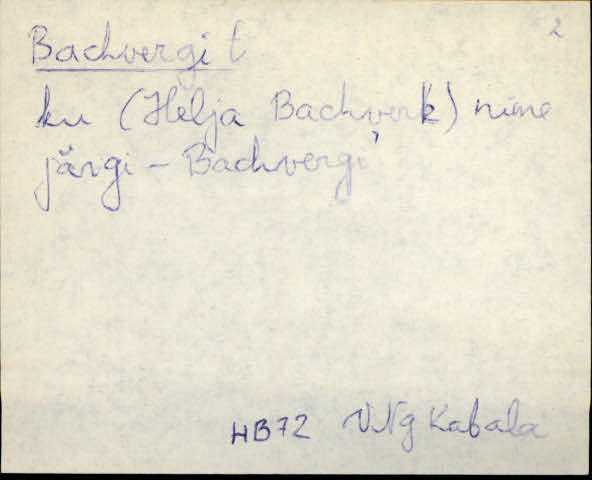 2
Bachvergi t
ku (Helja Bachverk) nime
järgi - Bachvergi
HB72 VNg Kabala